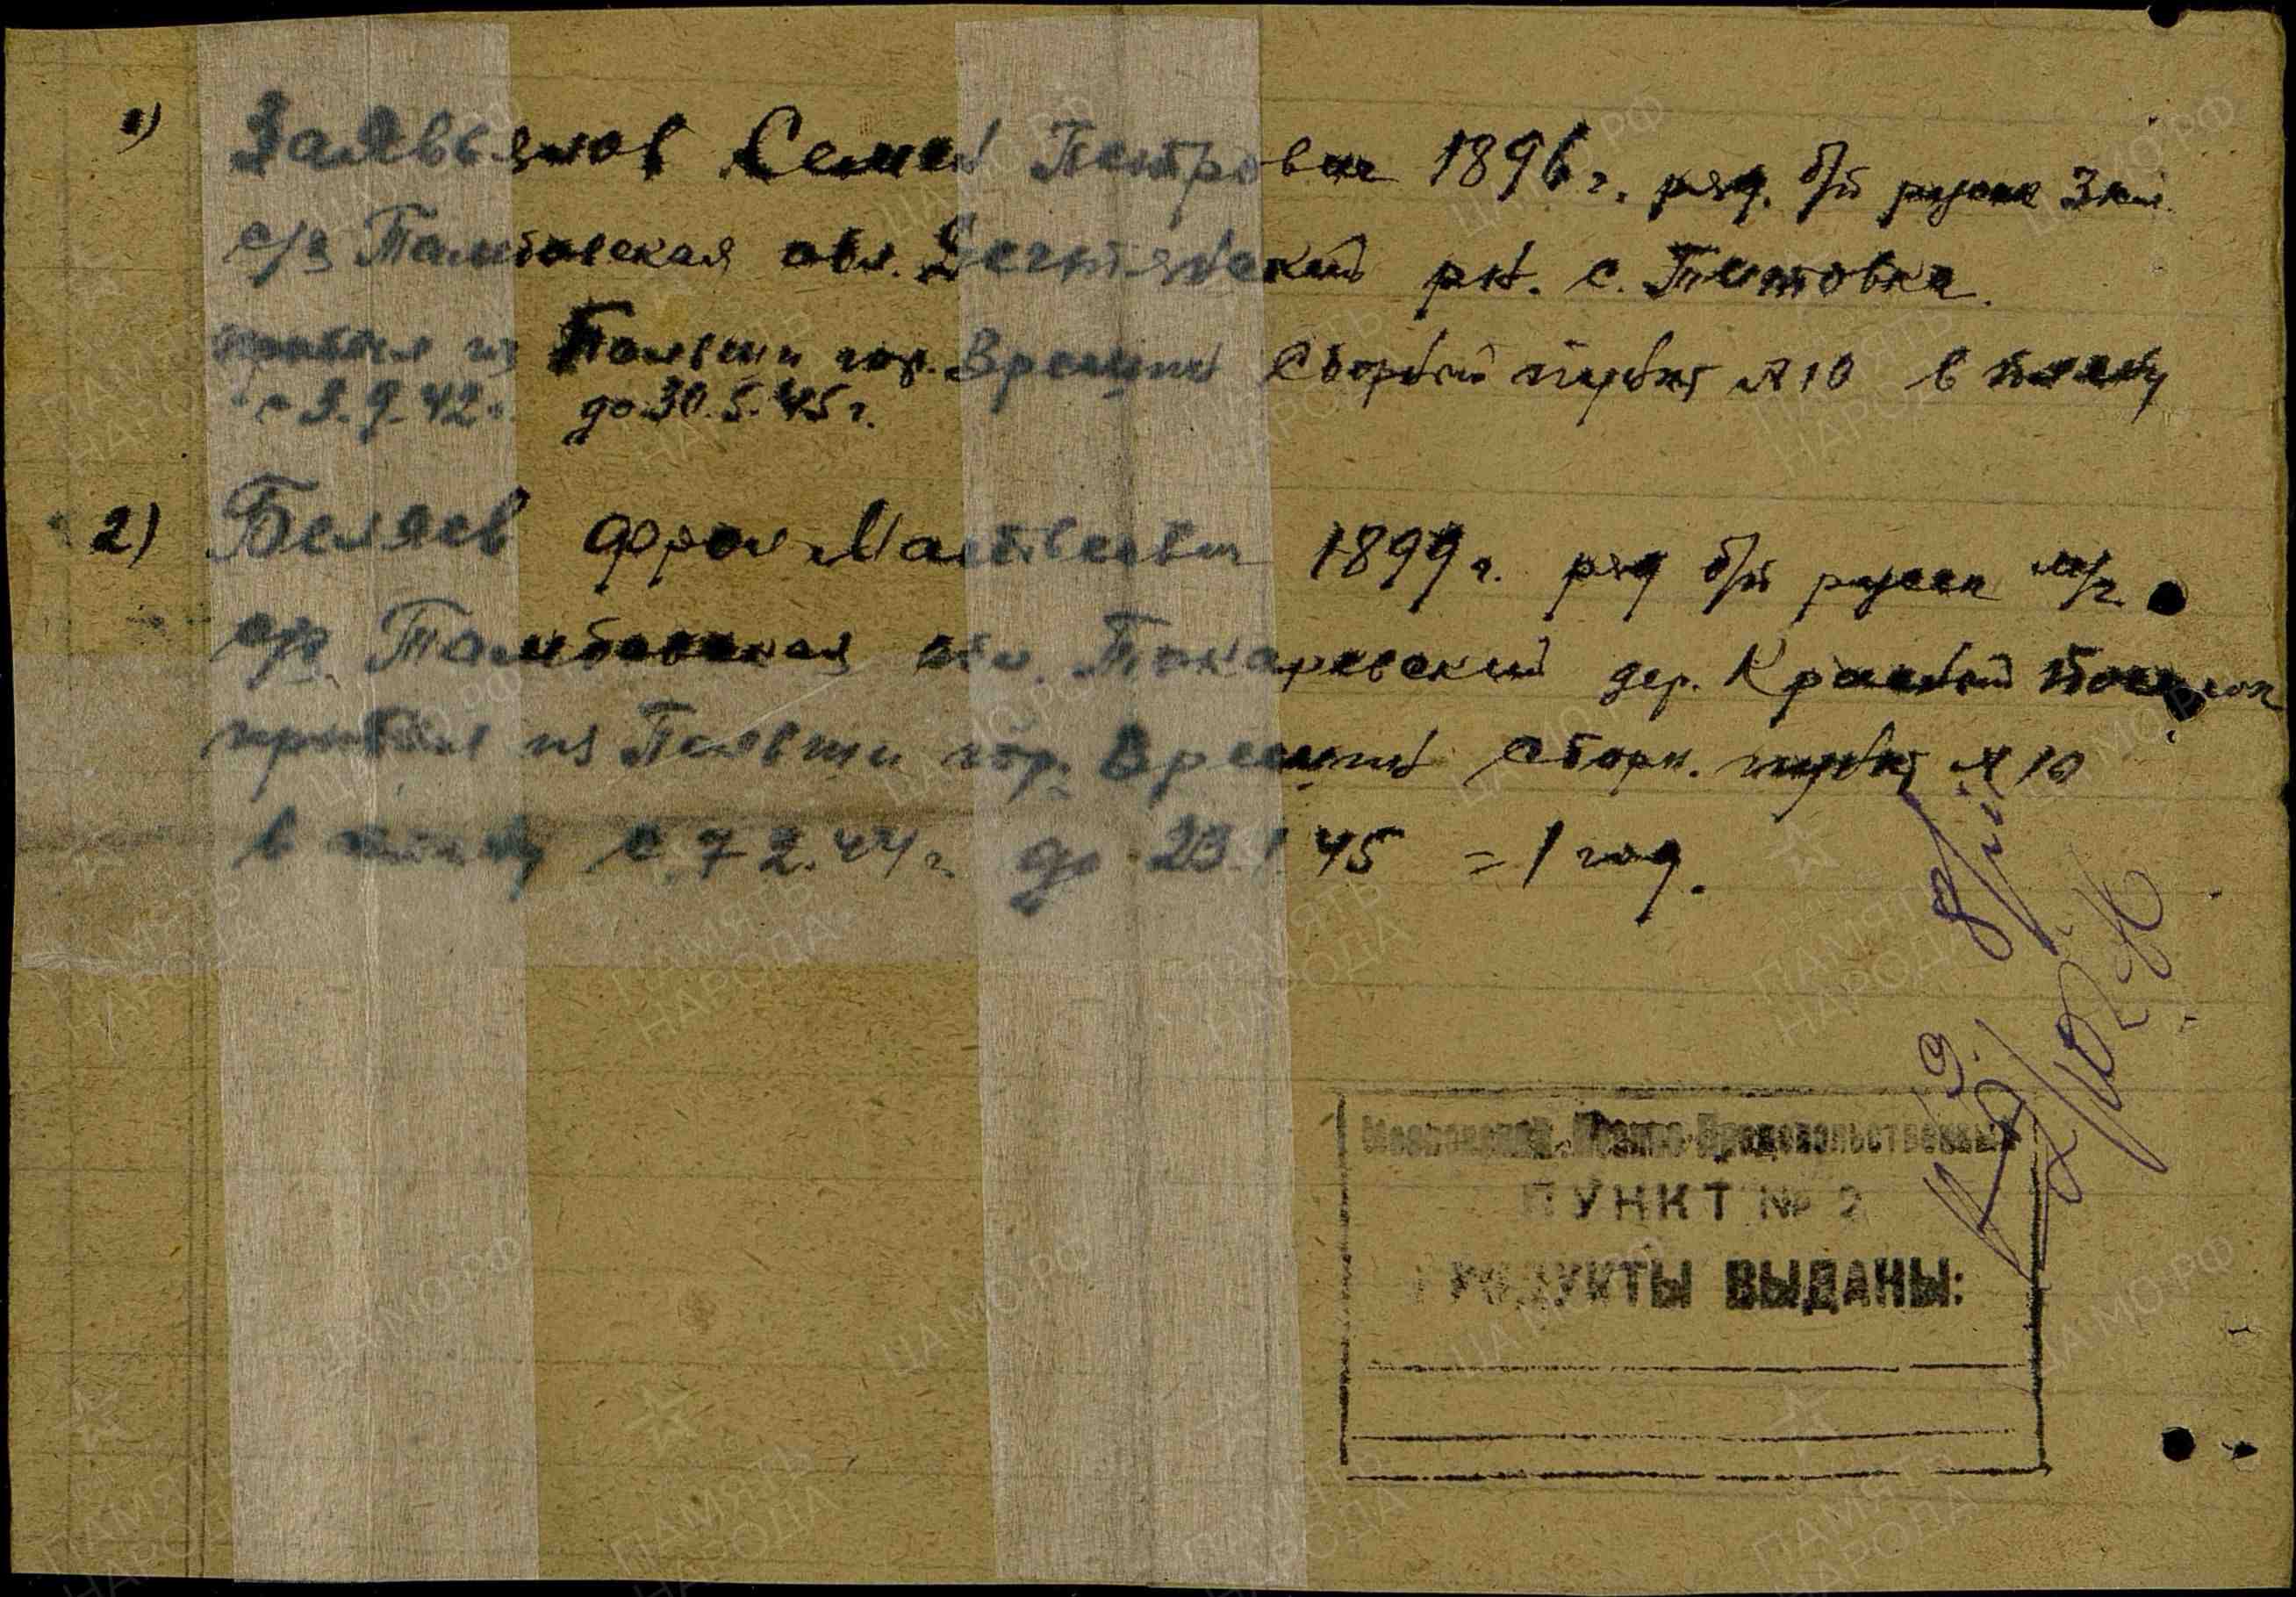 1) Семен Петрович 1896 г. ряд. б/п русск 3 кл.
с/з Тамбовская обл. рн. с. Титовка.
прибыл из Польши гор. Врешин Сборный пункт № 10 в плену
с 3.9.42 г. до 30.5.45 г.
2) Беляев Фрол Матвеевич 1899 г. ряд б/п русск м/г
с/р Тамбовская обл. Токаревский дер. Красный
прибыл из Польши гор. Врешин Сборн. пункт № 10
в плену с 7 2.44 г. до 23.1 45 = 1 год.
Продовольственный
ПУНКТ № 2
ПРОДУКТЫ ВЫДАНЫ:
ПАМЯТЬ НАРОДА
ЦАМО.РФ